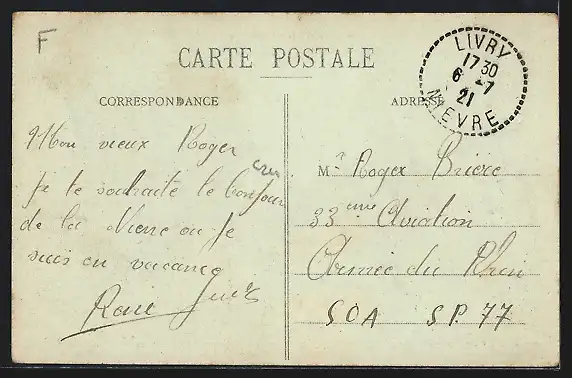 F
CARTE POSTALE
LIVRY
17 30
6 -7
21
NIEVRE
CORRESPONDANCE
ADRESSE
Mon vieux Roger
je te souhaite le bonjour
de la Nievre ou je
suis en vacance
Mr Roger Briere
33eme Aviation
Armée du Rhin
SOA SP. 77